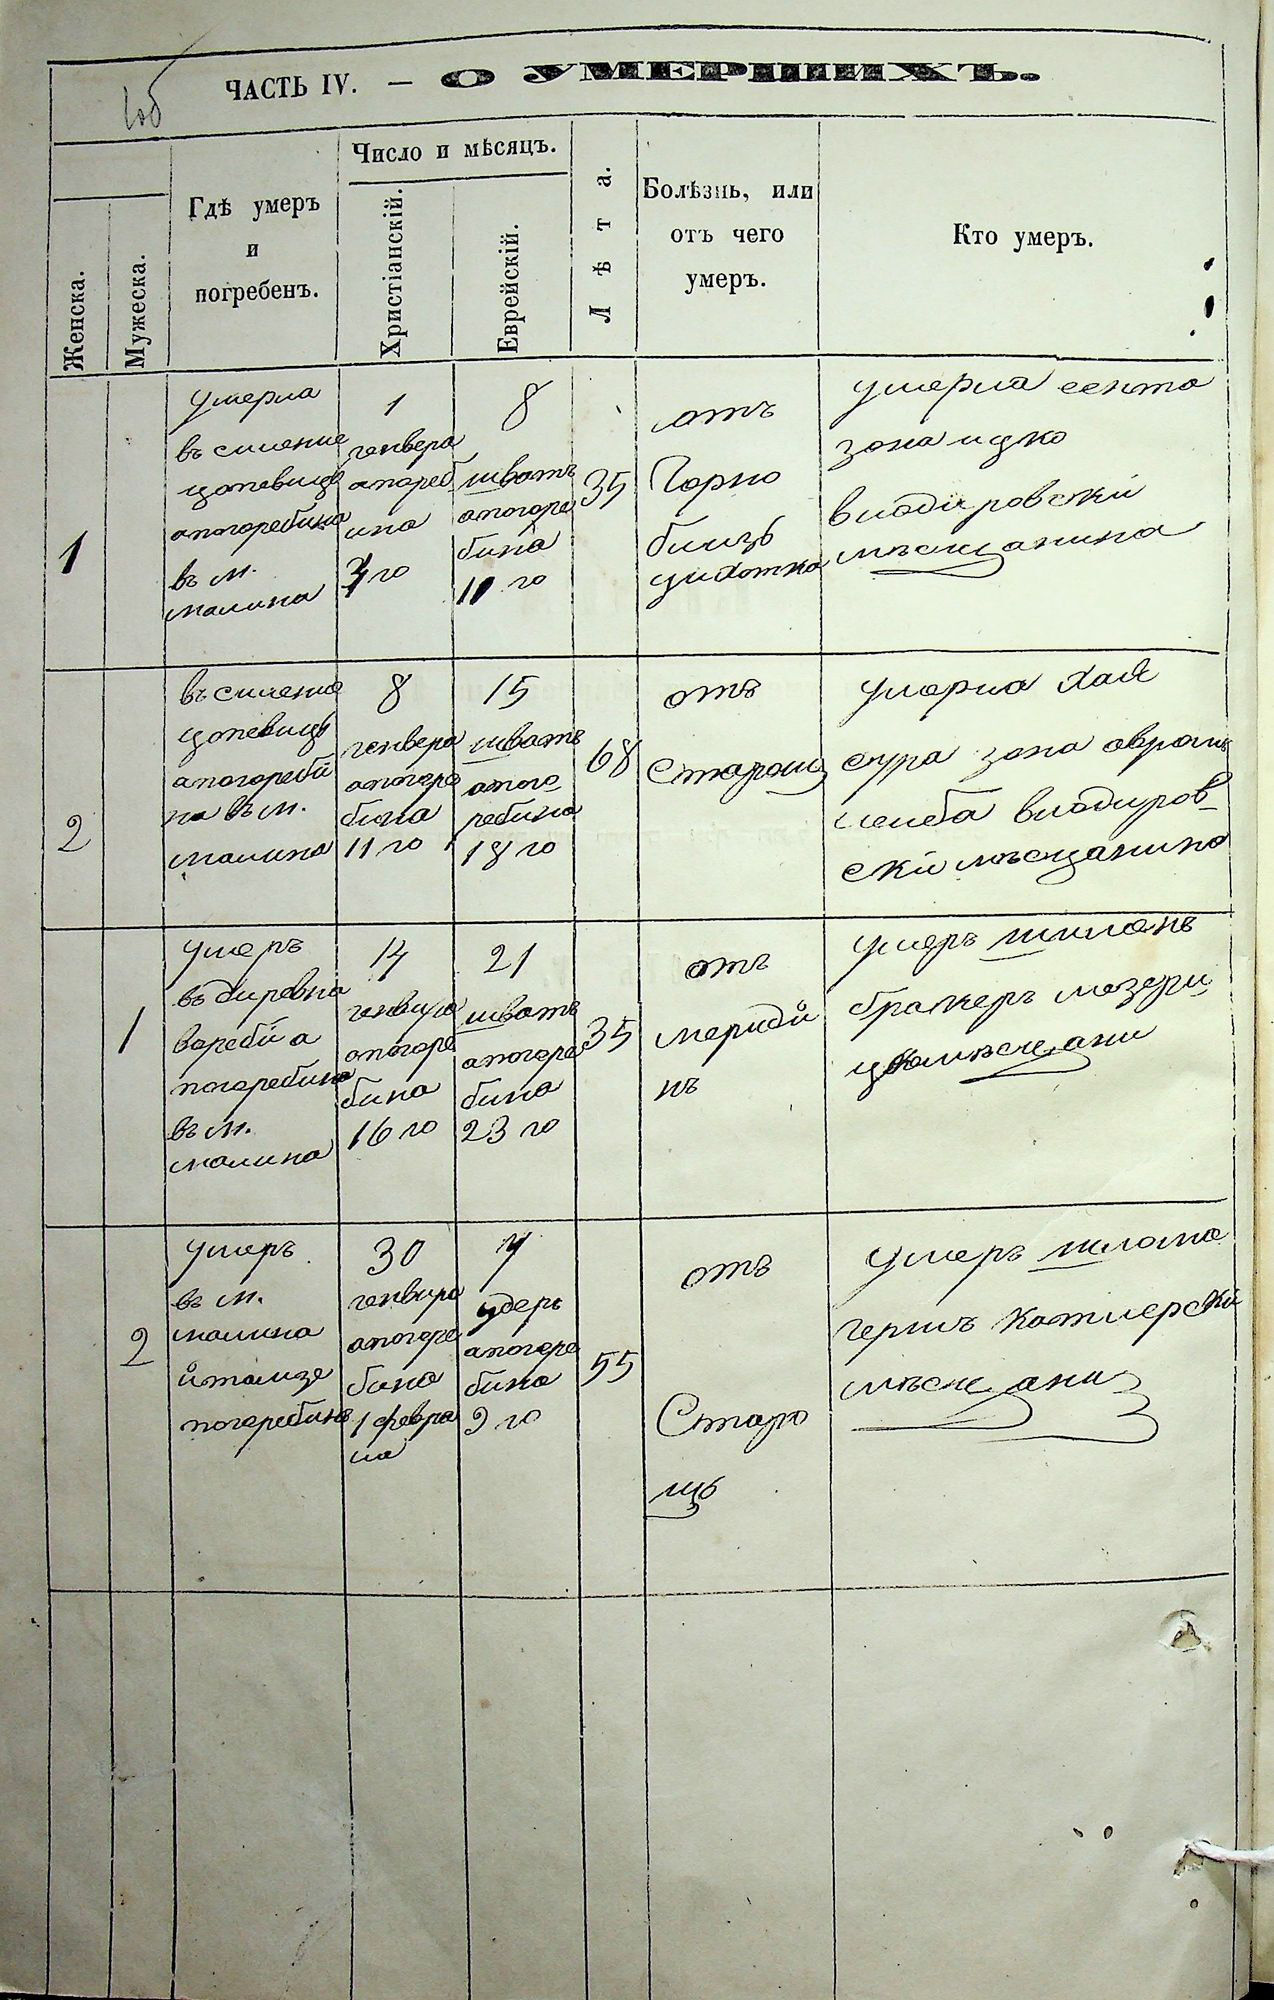 ЧАСТЬ IV. — О УМЕРШИХЪ.
Женска.
Мужеска.
Гдѣ умеръ
и
погребенъ.
Число и мѣсяцъ.
Христіанскій.
Еврейскій.
Лѣта.
Болѣзнь, или
отъ чего
умеръ.
Кто умеръ.
1
умерла
въ силение
апогоребина
въ м.
малина
1
генвера
апогреб
ина
3 го
8
шватъ
апогоре
бина
10 го
35
отъ
Горно
билизь
умерла сента
зона ицко
влодировскій
мъсщанина
2
въ силение
цопевищъ
апогоребй
на въ м.
малина
8
генвера
апогоре
бина
11 го
15
шватъ
апого
ребина
18 го
68
отъ
Старощ
умерла хая
сура зона авромъ
лейба влодиров-
скій мъсщанина
1
умеръ
въ диревна
варебй а
погоребина
въ м.
малина
14
генвира
апогоре
бина
16 го
21
шватъ
апогоре
бина
23 го
35
отъ
умеръ
мозери
2
умеръ
въ м.
малина
йтамзе
погоребина
30
генвира
апогоре
бина
1 февра
ла
7
удеръ
апогоре
бина
9 го
55
отъ
Старо
щь
умеръ шлома
герить котлерскй
мъсщани